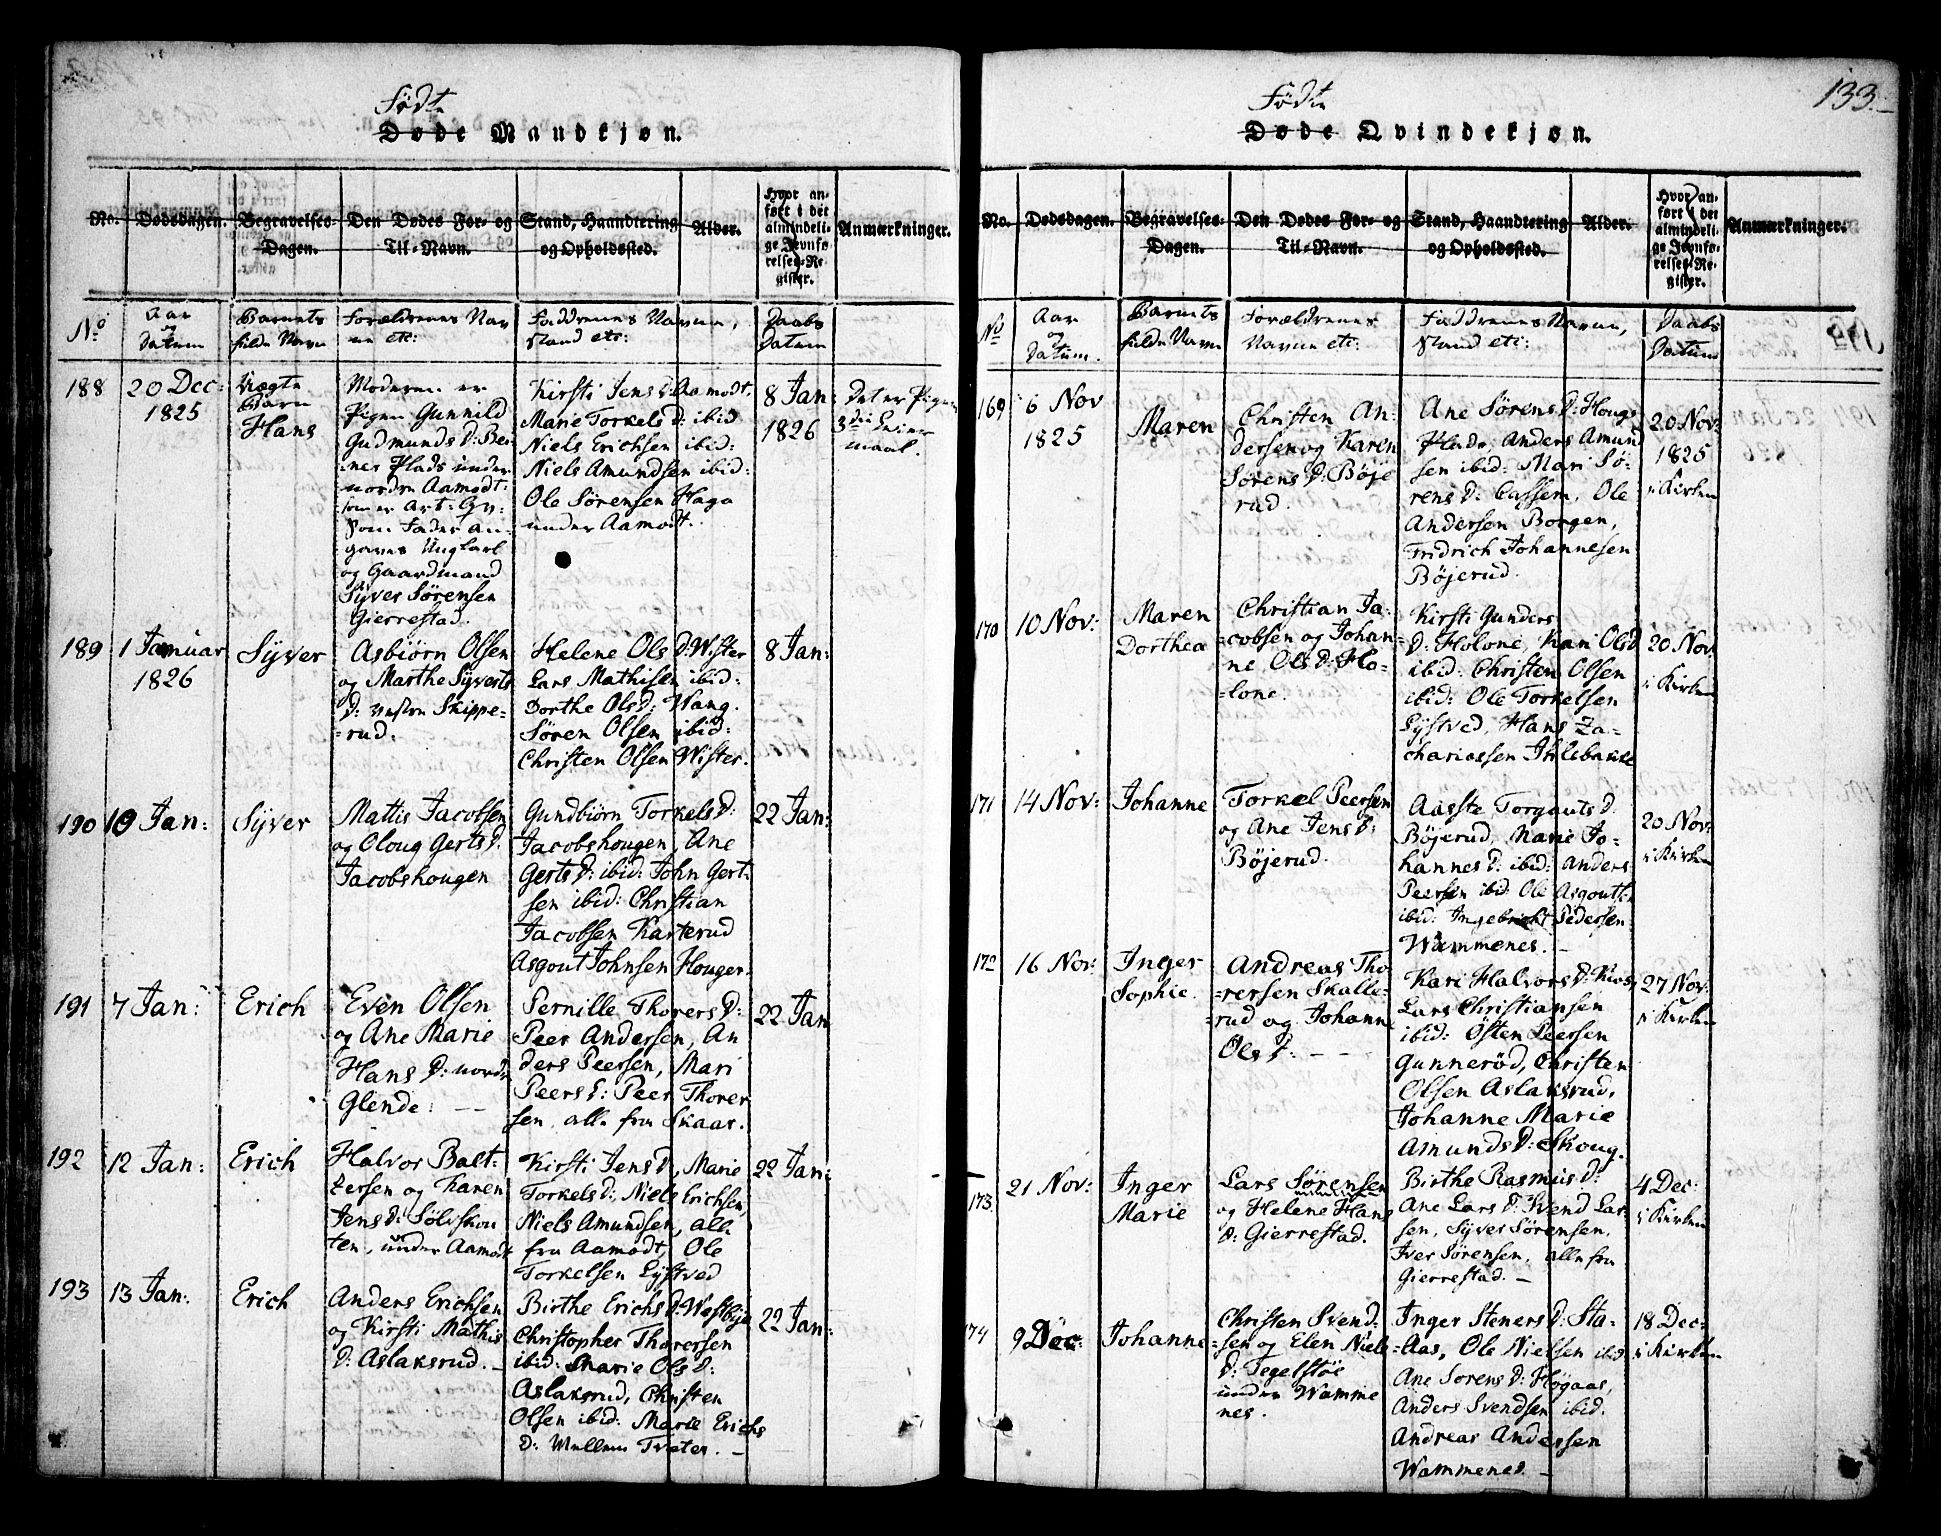 Fødte
Døde Mandkjøn.
No.
Dødsdagen.
Begravelses-
Dagen.
Den Dødes For- og
Til-Navn.
Stand, Haandtering
og Opholdssted.
Alder.
Hvor an-
ført i det
almindeli-
ge Jevnfø-
relses-Re-
gister.
Anmærkninger.
No
Aar
og
Datum
Barnets
fulde Navn
Forældrenes Nav
ne etc:
Faddrenes Navne,
stand etc:
Daabs
Datum
188
20 Dec:
1825
Uægte
Barn
Hans
Moderen er
Pigen Gunnild
Gudmunds D:
Plads under
nordre Aamodt:
som er
Som Fader an-
gaves Ungkarl
og Gaardmand
Syver Sørensen
Gierrestad.
Kirsti Jens D: Aamodt.
Marie Torkels D: ibid
Niels Erichsen ibid:
Niels Amundsen ibid:
Ole Sørensen Haga
under Aamodt.
8 Jan:
1826
Det er Pigens
3die Leier
maal.
189
1 Januar
1826
Syver
Asbiørn Olsen
og Marthe Syverts
D: vestre Skippe-
=rud.
Helene Ols D: Wister
Lars Mathisen ibid:
Dorthe Ols D: Wang.
Søren Olsen ibid:
Christen Olsen Wister.
8 Jan:
190
10 Jan:
Syver
Mattis Jacobsen
og Oloug Gerts D:
Jacobshougen
Gundbiørn Torkels D:
Jacobshougen, Ane
Gerts D: ibid: John Gert-
sen ibid: Christian
Jacobsen Karterud
Asgout Johnsen Houger.
22 Jan:
191
7 Jan:
Erich
Even Olsen
og Ane Marie
Hans D: nordre
Glende: --
Pernille Thorers D:
Peer Andersen, An
ders Peersen, Mari
Peers D: Peer Thorer
sen, alle fra Skaar.
22 Jan
192
12 Jan:
Erich
Halvor Balt-
zersen og Karen
Jens D: Sølvskou
ten, under Aamodt
Kirsti Jens D, Marie
Torkels D: Niels Erichsen,
Niels Amundsen, alle
fra Aamodt, Ole
Torkelsen Lystved
22 Jan:
193
13 Jan:
Erich
Anders Erichsen
og Kirsti Mathis
D: Aslaksrud. -
Birthe Erichs D: Westbye
Christopher Thorersen
ibid: Marie Ols D:
Aslaksrud, Christen
Olsen ibid: Marie Erichs
D: Mellem Tveter. -
22 Jan:
133.-
Fødte
Døde Qvindekjøn.
No.
Dødsdagen.
Begravelses-
Dagen.
Den Dødes For- og
Til-Navn.
Stand, Haandtering
og Opholdssted.
Alder.
Hvor an-
ført i det
almindeli-
ge Jevnfø-
relses-Re-
gister.
Anmærkninger.
No
Aar
og
Datum.
Barnets
fulde Navn
Forældrenes
Navne etc:
Faddrenes Navne,
Stand etc:
Daabs
Datum
169
6 Nov
1825
Maren
Christen An-
dersen og Karen
Sørens D: Bøje
rud.
Ane Sørens D: Hougs
Anders Amund
sen ibid: Mari Sø-
rens D: Cassem, Ole
Andersen Borgen,
Fridrich Johannesen
Bøjerud.
20 Nov:
1825
i Kirken
170
10 Nov:
Maren
Dorthea
Christian Ja-
=cobsen og Johan-
ne Ols D: Ho-
=lone
Kirsti Gunders
D: Holone, Kari Ols D
ibid: Christen Olsen
ibid: Ole Torkelsen
Lystved, Hans Za-
chariassen
20 Nov
i Kirken
171
14 Nov:
Johanne
Torkel Peersen
og Ane Jens D:
Bøjerud.
Aaste Torgauts D:
Bøjerud, Marie Jo-
hannes D: ibid: Anders
Peersen ibid: Ole Asgouts:
ibid: Ingebricht Pedersen
Wammenes. -
20 Nov:
i Kirken
172
16 Nov:
Inger
Sophie.
Andreas Tho-
=rersen Skalle-
=rud og Johanne
Ols D: - -
Kari Halvors D:
Lars Christiansen
ibid: Østen Peersen
Gunnerød, Christen
Olsen Aslaksrud,
Johanne Marie
Amunds D: Skoug.
27 Nov:
i Kirken
173
21 Nov:
Inger
Marie
Lars Sørensen
og Helene Hans
D: Gierrestad.
Birthe Rasmus D:
Ane Lars D: Svend Lar-
sen, Syver Sørensen,
Iver Sørensen, alle fra
Gierrestad. -
4 Dec:
i Kirken
174
9 Dec:
Johanne
Christen Svend-
=sen og Elen Niels
D: Tegelstøe
under Wamme
nes.
Inger Steners D: Sta-
=Aas, Ole Nielsen ibid
Ane Sørens D: Høgaas,
Anders Svendsen ibid.
Andreas Andersen
Wammenes. -
18 Dec:
i Kirken